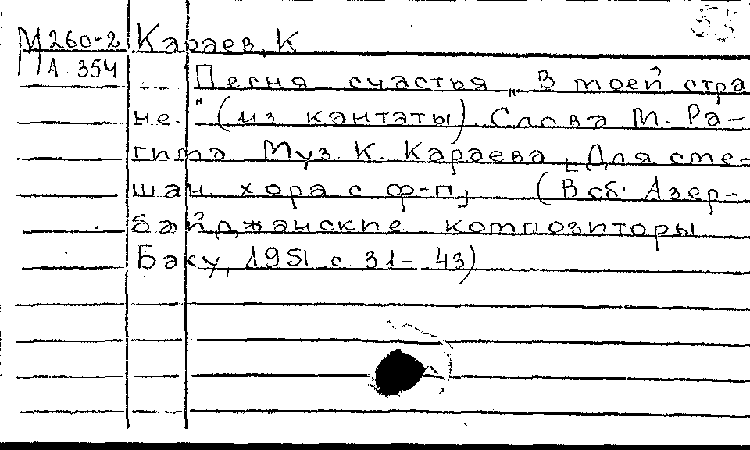 55
М 260-2 Караев, К
А 354
Песня счастья „В твоей стра
не." (из кантаты). Слова М. Ра-
гима Муз. К. Караева [Для сме-
шан. хора с ф-п] (В сб. Азер-
байджанские композиторы
Баку, 1951 с 31-43)